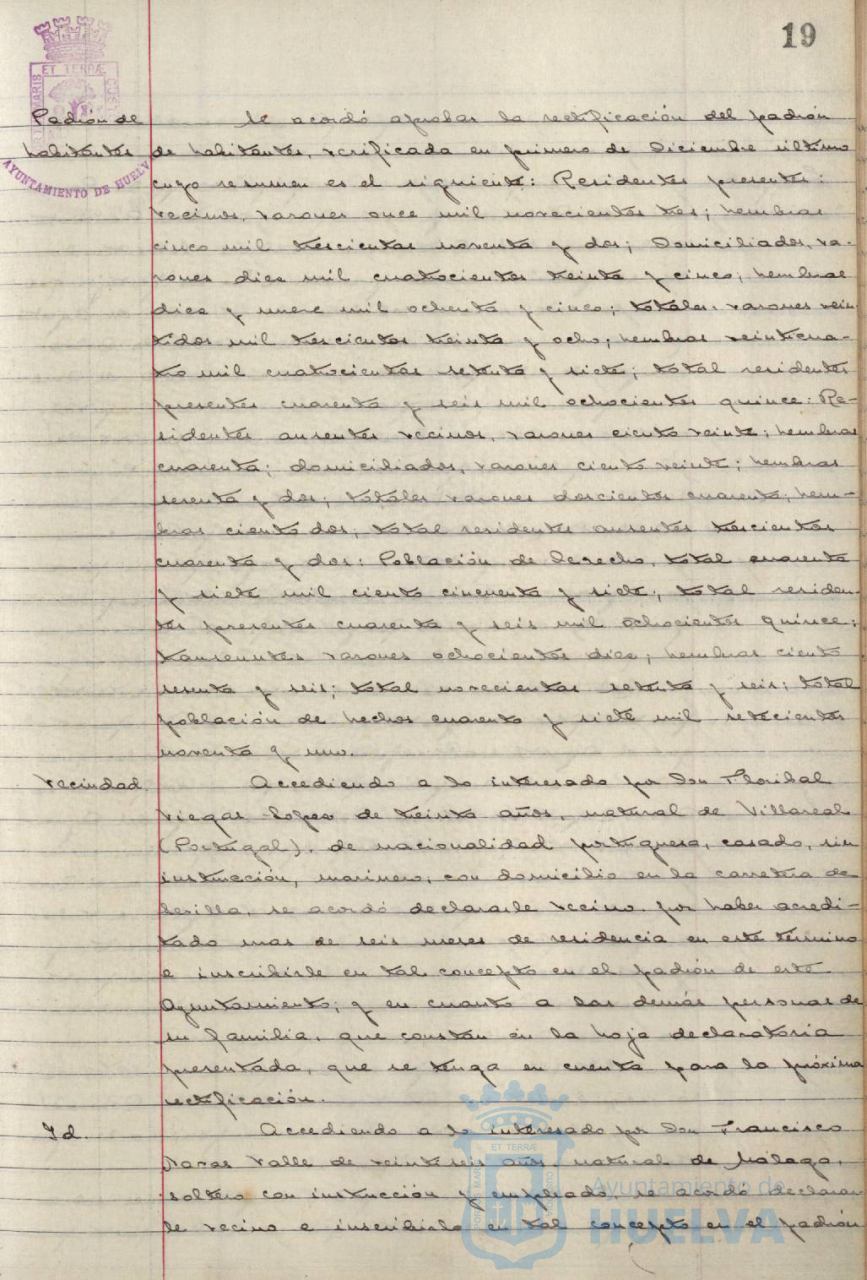 19
ET TERRÆ
AYUNTAMIENTO DE HUELVA
Padrón de
habitantes
Se acordó aprobar la rectificación del padrón
de habitantes, verificada en primero de Diciembre último
cuyo resumen es el siguiente: Residentes presentes:
vecinos, varones once mil novecientos tres; hembras
cinco mil trescientas noventa y dos; Domiciliados, va-
rones diez mil cuatrocientos treinta y cinco; hembras
diez y nueve mil ochenta y cinco; totales, varones vein-
tidos mil trescientos treinta y ocho; hembras veinticua-
tro mil cuatrocientas setenta y siete; total residentes
presentes cuarenta y seis mil ochocientos quince: Re-
sidentes ausentes vecinos, varones ciento veinte; hembras
cuarenta; domiciliados, varones ciento veinte; hembras
sesenta y dos; totales varones doscientos cuarenta, hem-
bras ciento dos; total residentes ausentes trescientos
cuarenta y dos: Población de Derecho, total cuarenta
y siete mil ciento cincuenta y siete; total residen-
tes presentes cuarenta y seis mil ochocientos quince;
transeuntes varones ochocientos diez; hembras ciento
sesenta y seis; total novecientas setenta y seis; total
población de hechos cuarenta y siete mil setecientos
noventa y uno.
Vecindad.
Accediendo a lo interesado por Don Floribal
Viegas Lopes de treinta años, natural de Villareal
(Portugal), de nacionalidad portuguesa, casado, sin
instrucción, marinero, con domicilio en la carretera de
Sevilla, se acordó declararle vecino por haber acredi-
tado mas de seis meses de residencia en este término
e inscribirle en tal concepto en el padrón de este
Ayuntamiento; y en cuanto a las demás personas de
su familia, que constan en la hoja declaratoria
presentada, que se tenga en cuenta para la próxima
rectificación.
Id.
Accediendo a lo interesado por Don Francisco
Valle de veintiseis años, natural de Málaga,
soltero con instrucción y empleado, se acordó declarar-
le vecino e inscribirlo en tal concepto en el padrón
ET TERRÆ
Ayuntamiento de
HUELVA